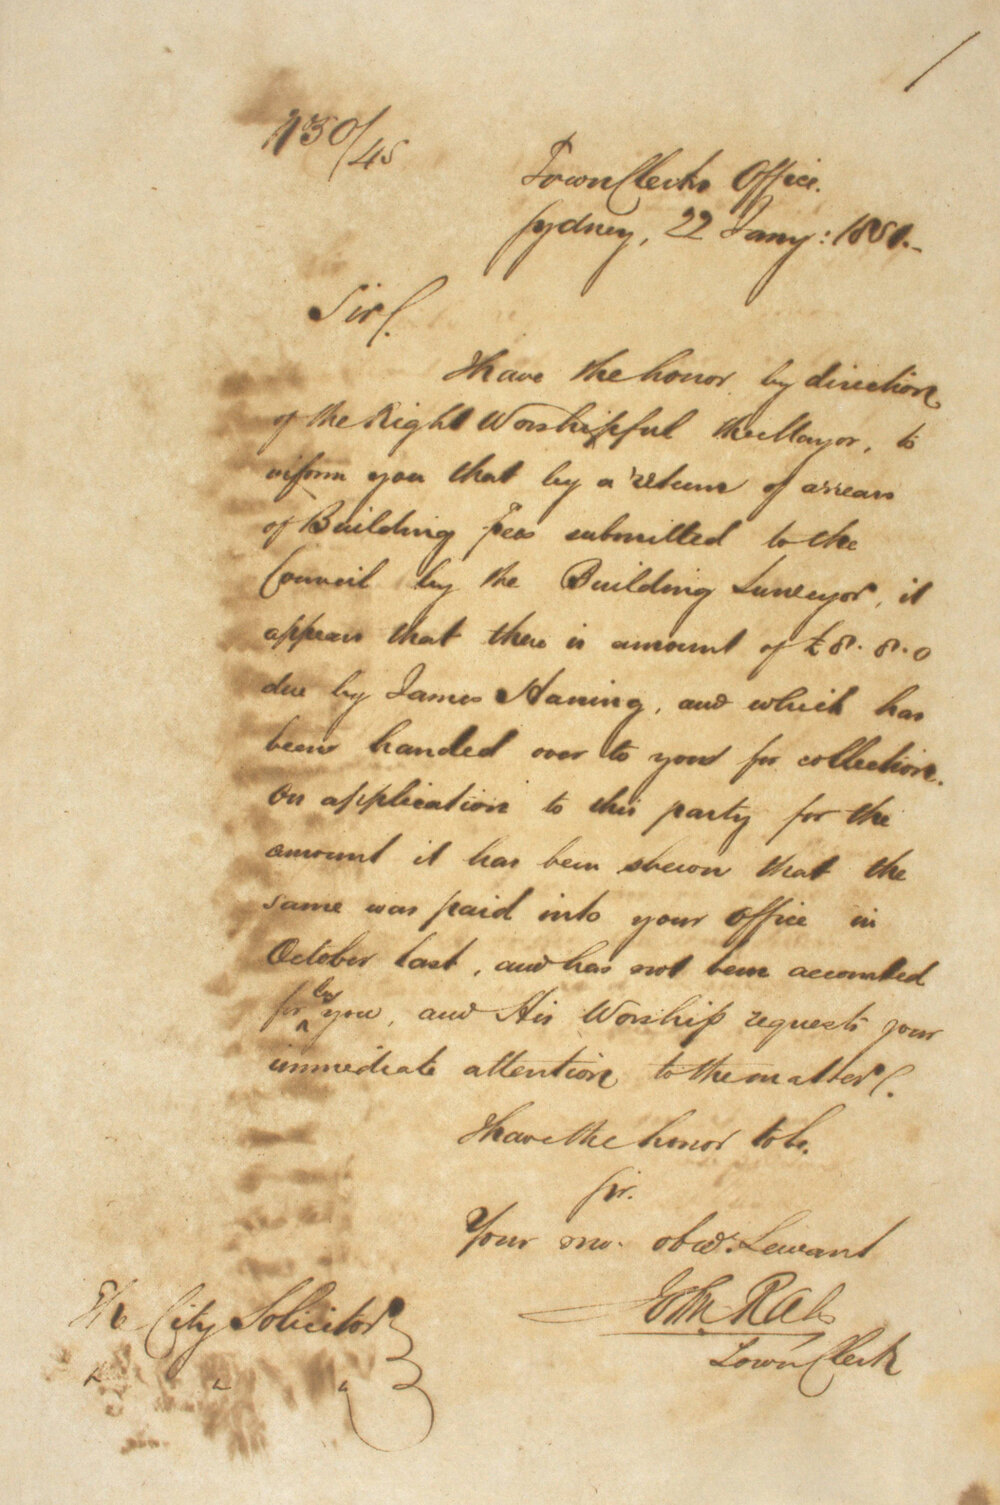 /
130/45
Town Clerks Office.
Sydney, 22 Jany: 1851.
Sir,
I have the honor by direction
of the Right Worshipful the Mayor, to
inform you that by a return of arrears
of Building Fees submitted to the
Council by the Building Surveyor, it
appears that there is amount of £8.8.0
due by James Haning, and which has
been handed over to your for collection.
On application to this party for the
amount it has been shewn that the
same was paid into your office in
October last, and has not been accounted
for by you, and His Worship requests your
immediate attention to the matter.
I have the honor to be,
Sir.
Your mo. obedt. Servant
John Rae
Town Clerk
The City Solicitor
" " "